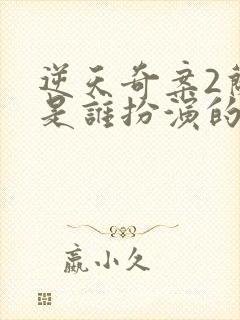 逆天奇案2
是誰扮演的
嬴小久